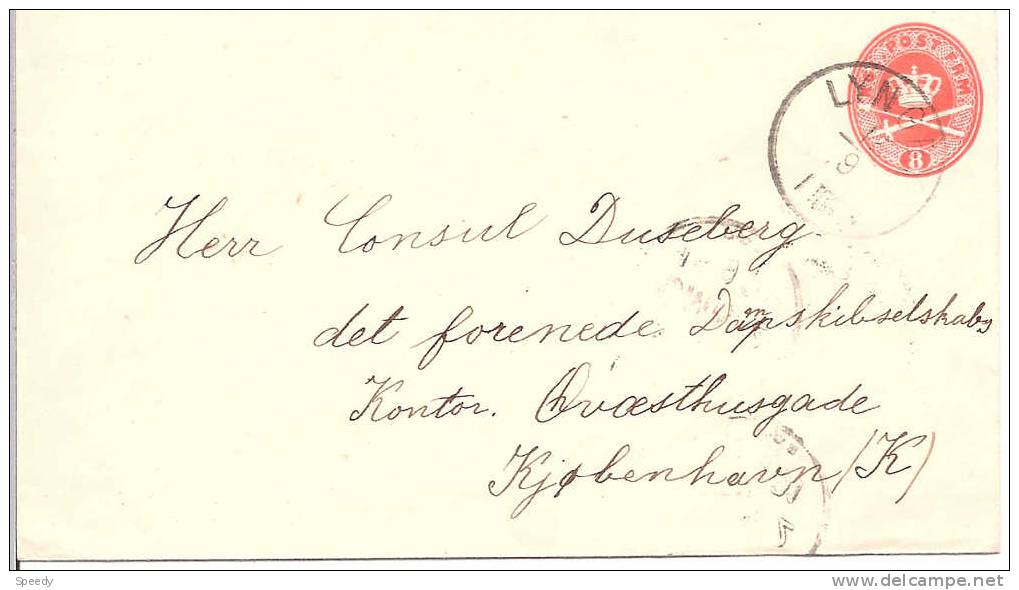 POST FRM.
8
LYNG
Herr Consul Duseberg
det forenede Dampskibselskabs
Kontor. Qvæsthusgade
Kjøbenhavn (K)
Speedy
delcampe.net